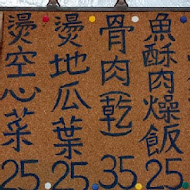 魚酥肉燥飯 25
骨肉(乾) 35
燙地瓜葉 25
燙空心菜 25